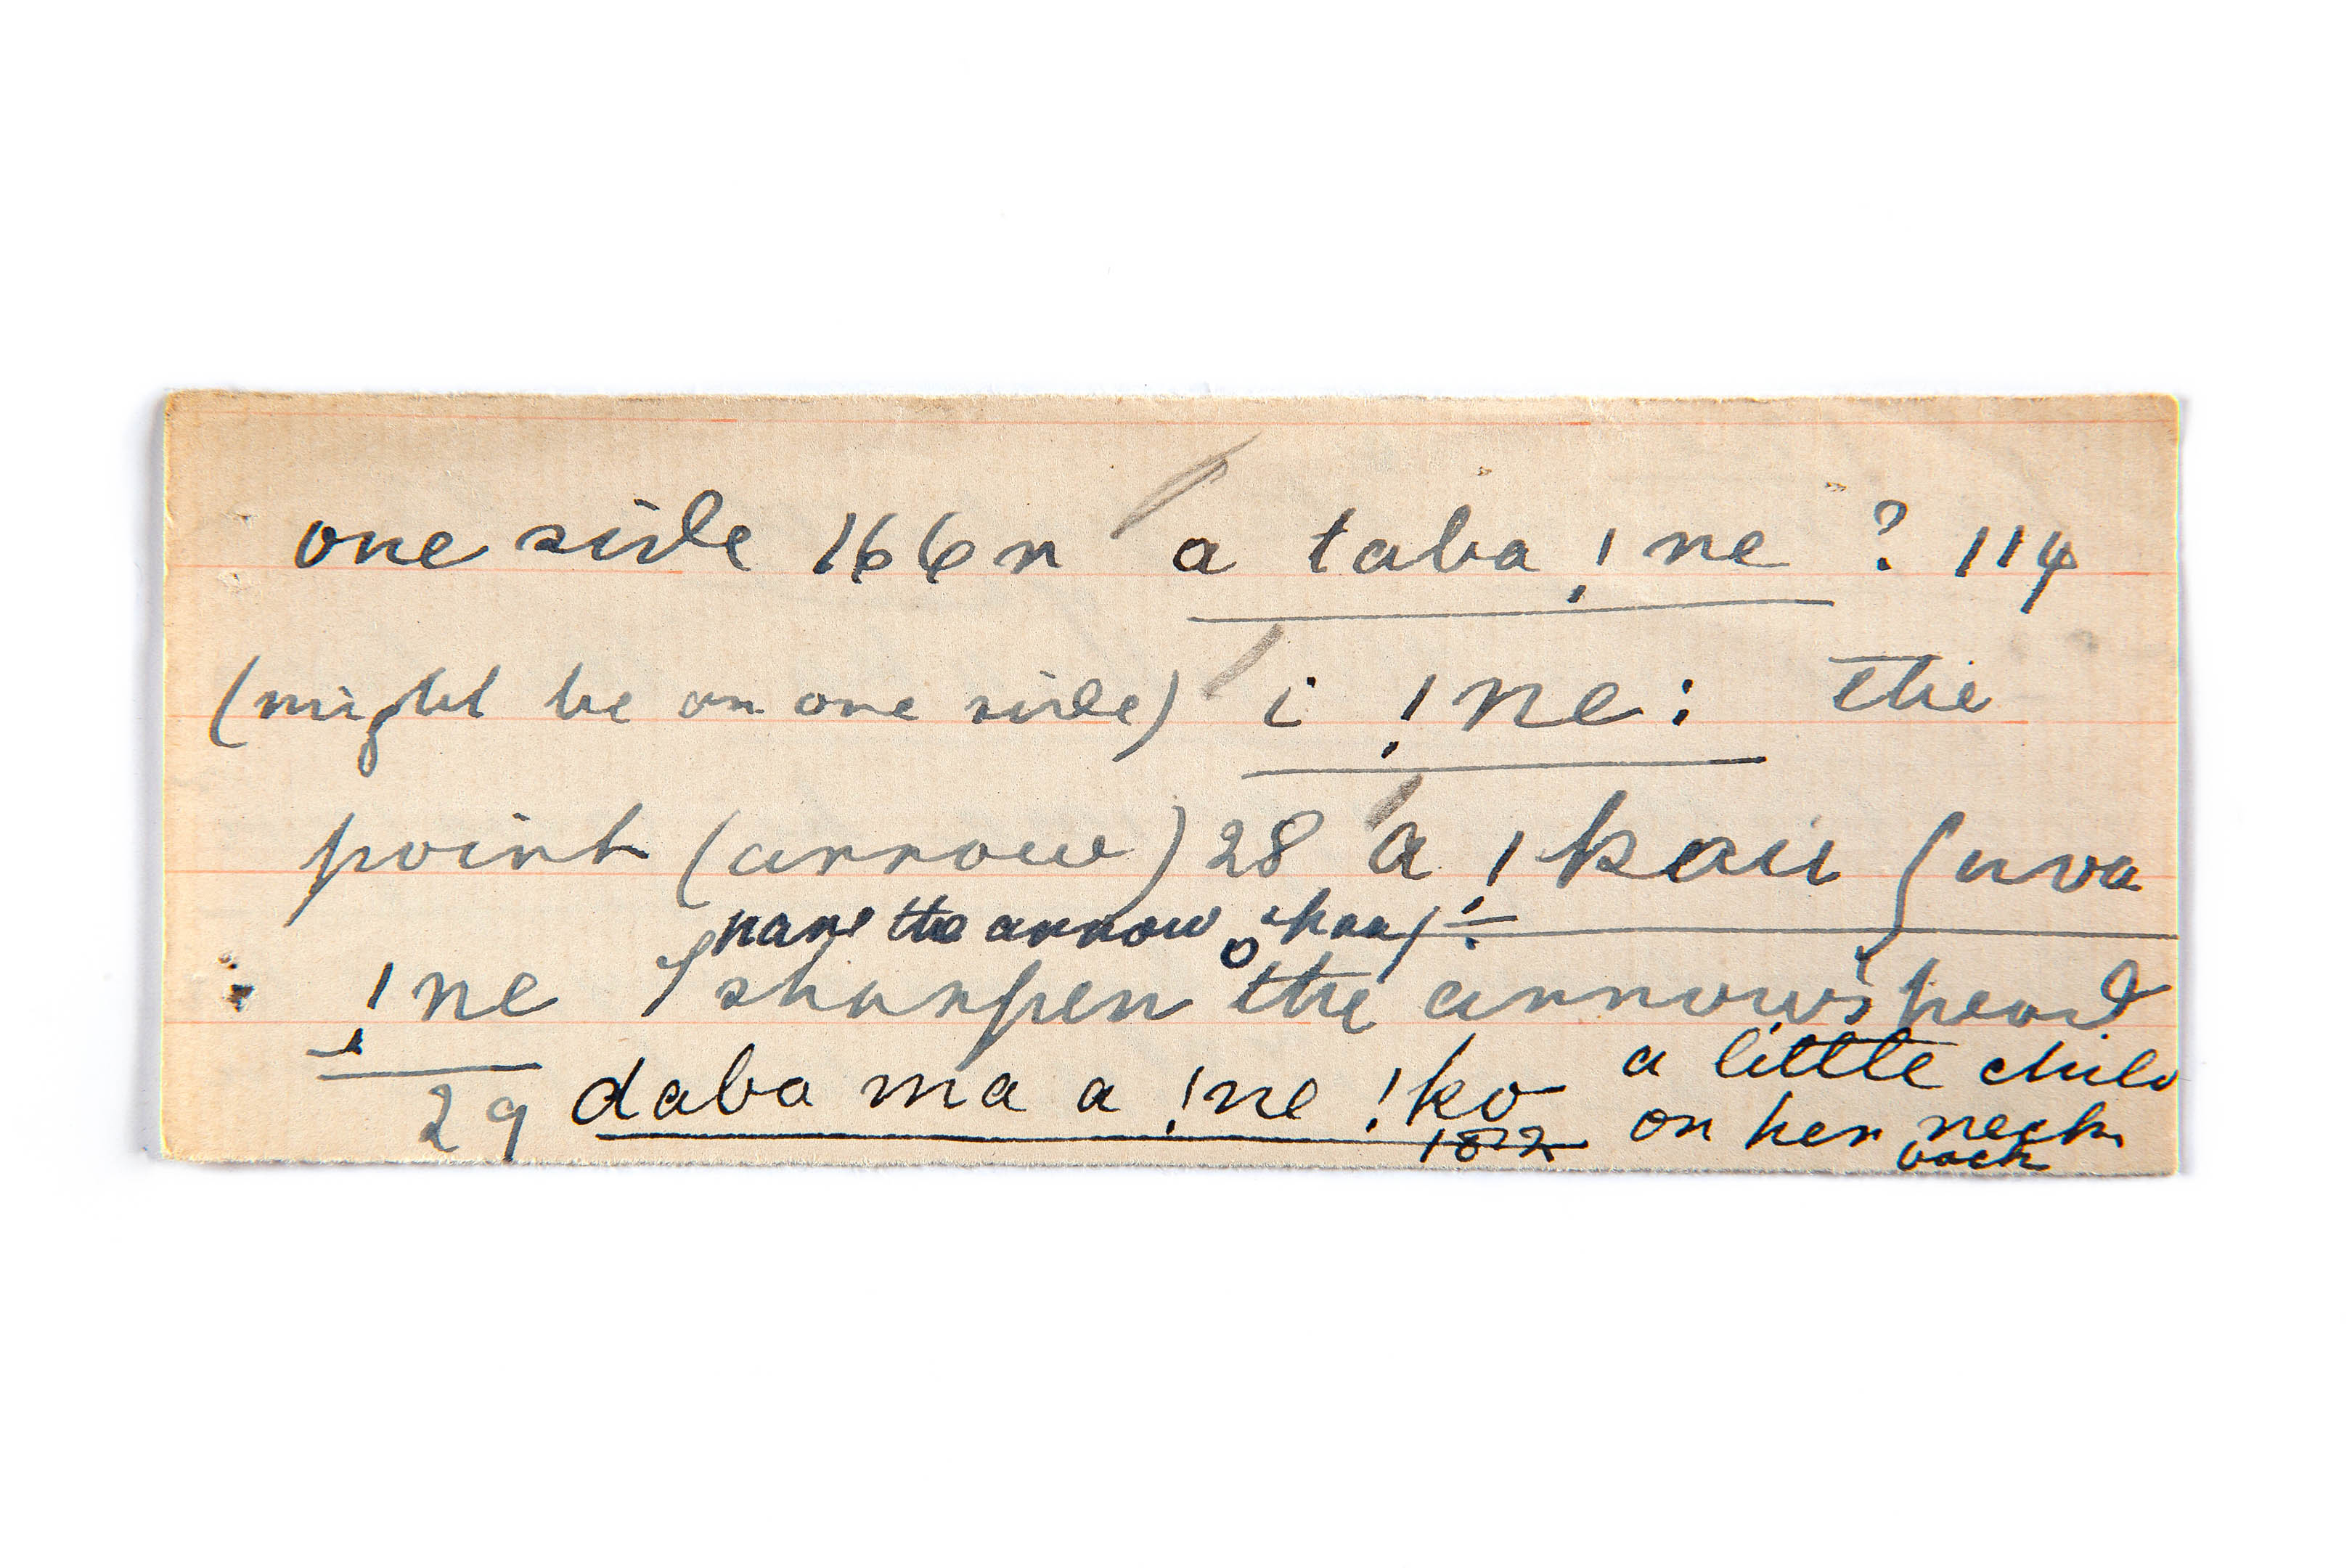 one side 166n a taba !̣ ne ? 114
(might be on one side) i !̣ ne : the
point (arrow) 28 a ! kau ʃ uva
pare the arrow shaft
!̣ ne sharpen the arrow's head
a little child
29 daba ma a !̣ne !̣ko on her neck
1822 back